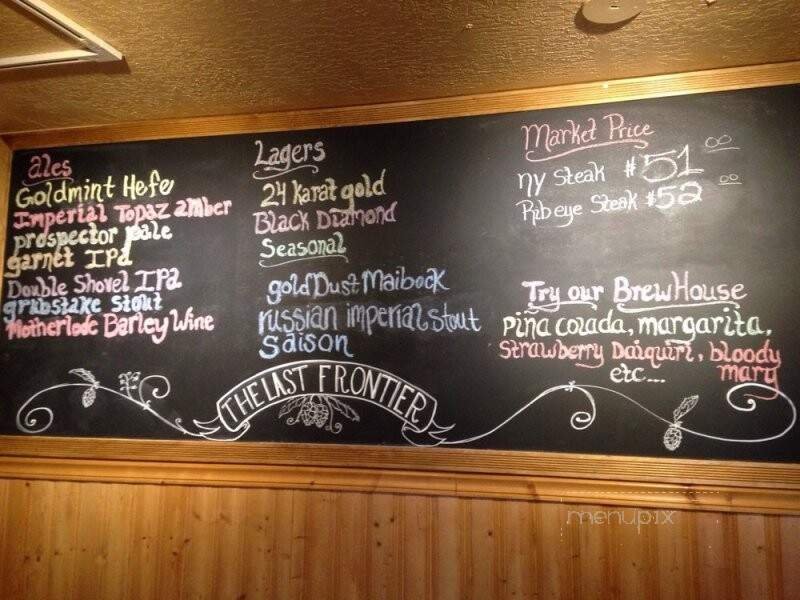 ales
Goldmint Hefe
Imperial Topaz amber
prospector pale
Garnet IPa
Double Shovel IPa
grubstake stout
Motherlode Barley Wine
Lagers
24 karat gold
Black Diamond
Seasonal
gold Dust Maibock
russian imperial stout
saison
THE LAST FRONTIER
Market Price
ny Steak $51.00
Rib eye Steak $52.00
Try our BrewHouse
piña colada, margarita,
Strawberry Daiquiri, bloody
etc... mary
menupix